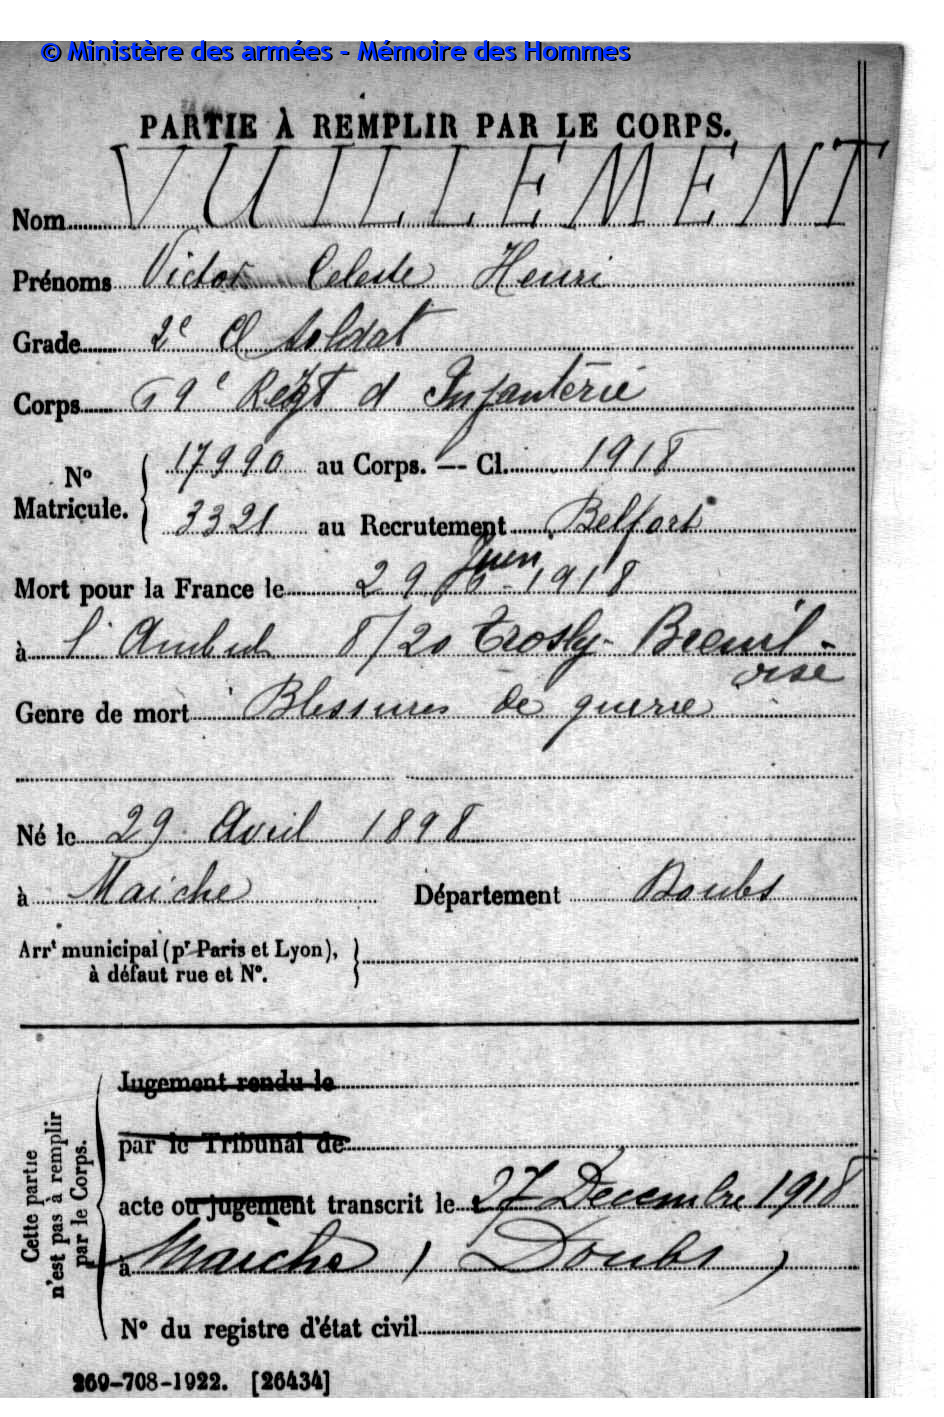 © Ministère des armées - Mémoire des Hommes
PARTIE À REMPLIR PAR LE CORPS.
Nom VUILLEMENT
Prénoms Victor Celeste Henri
Grade 2e Cl soldat
Corps 69e Regt d Infanterie
No Matricule. { 17990 au Corps. — Cl. 1918
3321 au Recrutement Belfort
Mort pour la France le 29 Juin 1918
à l'Ambul 8/20 Trosly-Breuil - oise
Genre de mort Blessures de guerre
Né le 29 Avril 1898
à Maiche Département Doubs
Arrt municipal (pr Paris et Lyon),
à défaut rue et No.
Cette partie
n'est pas à remplir
par le Corps.
Jugement rendu le
par le Tribunal de
acte ou jugement transcrit le 27 Decembre 1918
à Maiche (Doubs)
No du registre d'état civil
269-708-1922. [26434]